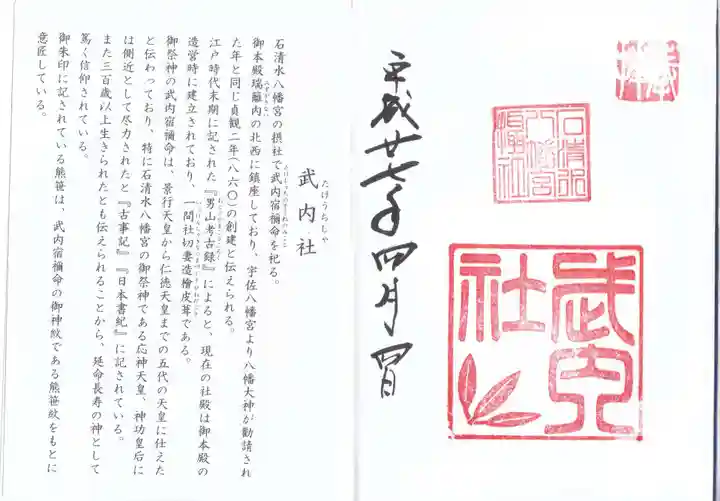 奉拝
石清水
八幡宮
摂社
武内
社
平成廿七年四月四日
たけうちしゃ
武内社
石清水八幡宮の摂社で武内宿禰命を祀る。
御本殿瑞籬内の北西に鎮座しており、宇佐八幡宮より八幡大神が勧請され
た年と同じ貞観二年(八六〇)の創建と伝えられる。
江戸時代末期に記された『男山考古録』によると、現在の社殿は御本殿の
造営時に建立されており、一間社切妻造檜皮葺である。
御祭神の武内宿禰命は、景行天皇から仁徳天皇までの五代の天皇に仕えた
と伝わっており、特に石清水八幡宮の御祭神である応神天皇、神功皇后に
は側近として尽力されたと『古事記』『日本書紀』に記されている。
また三百歳以上生きられたとも伝えられることから、延命長寿の神として
篤く信仰されている。
御朱印に記されている熊笹は、武内宿禰命の御神紋である熊笹紋をもとに
意匠している。